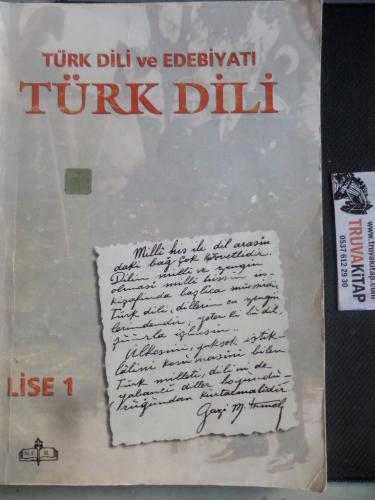 TÜRK DİLİ ve EDEBİYATI
TÜRK DİLİ
Milli his ile dil arasın
daki bağ çok kuvvetlidir.
Dilin milli ve zengin
olması milli hissin in-
kişafında başlıca müessirdir.
Türk dili, dillerin en zengin
lerindendir; yeter ki bu dil,
şuurla işlensin.
Ülkesini, yüksek istik-
lâlini korumasını bilen
Türk milleti, dilini de
yabancı diller boyundu-
ruğundan kurtarmalıdır.
Gazi M. Kemal
LİSE 1
M.E. B.
www.truvakitap.com
TRUVAKİTAP
0537 612 29 30